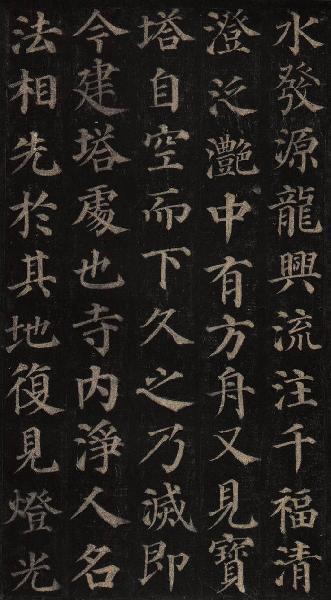 水發源龍興流注千福清
澄泛灧中有方舟又見寶
塔自空而下久之乃滅即
今建塔處也寺內淨人名
法相先於其地復見燈光